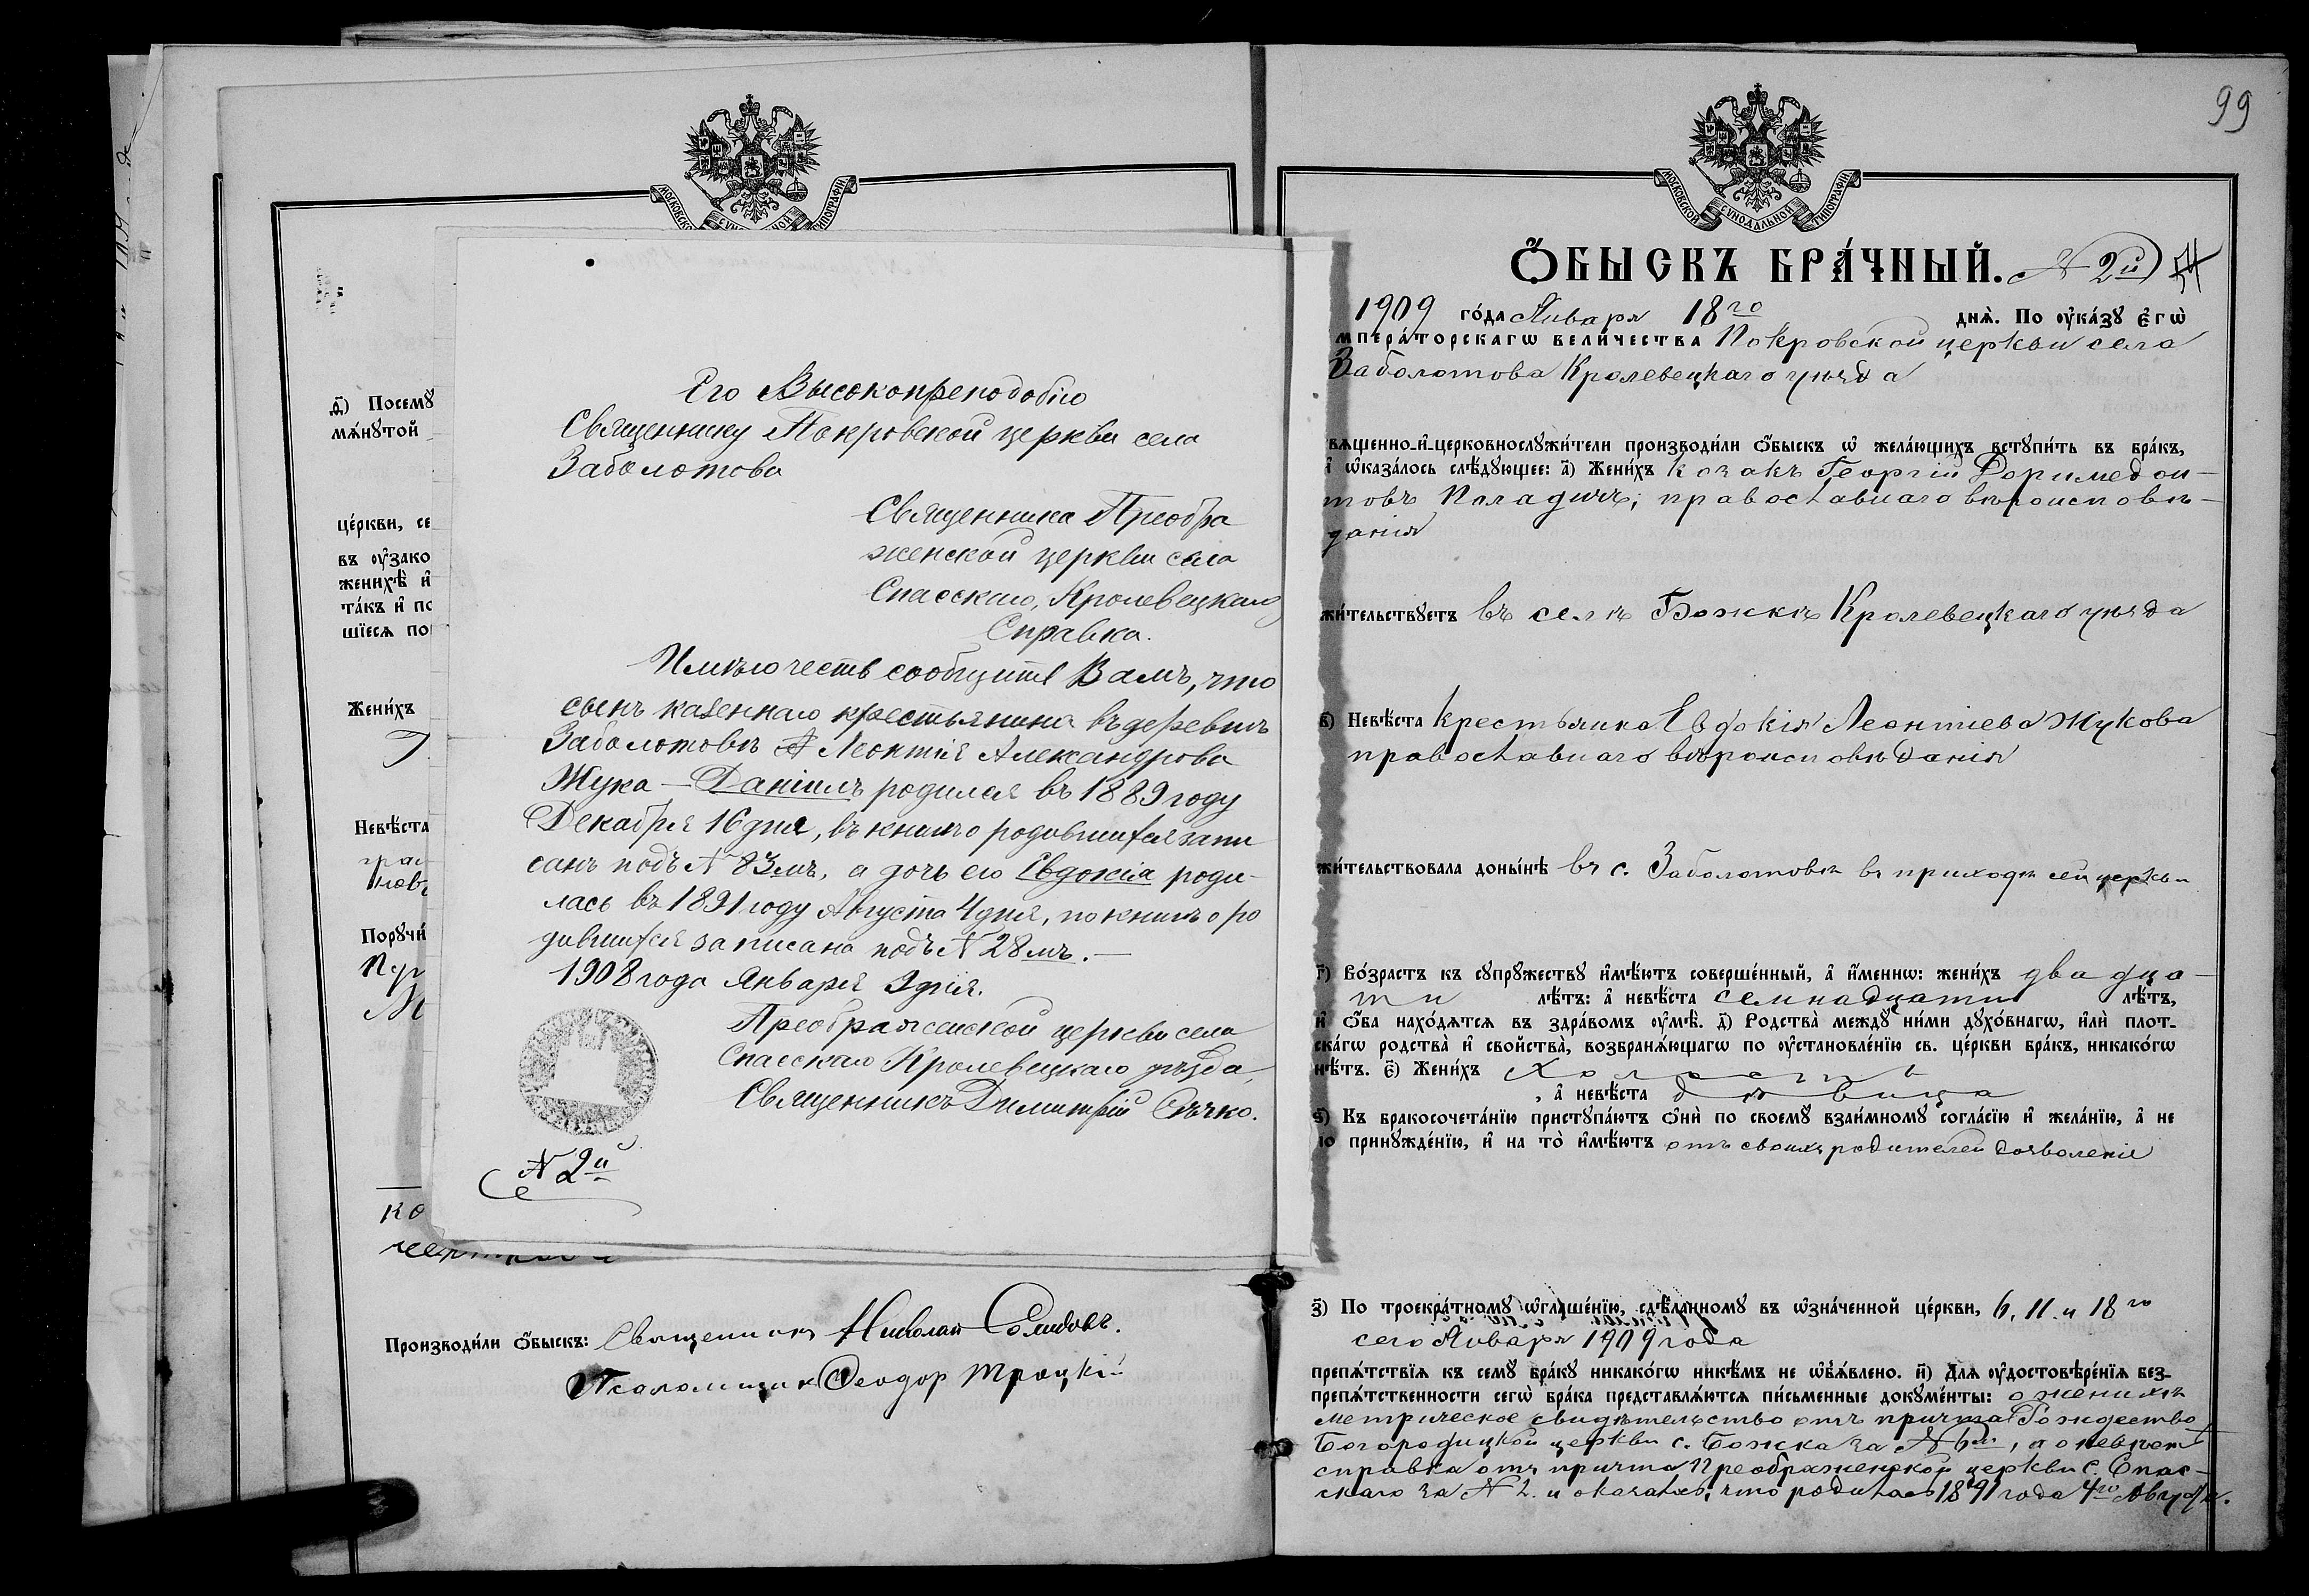 МОСКОВСКОЙ СѴНОДАЛЬНОЙ ТИПОГРАФІИ
д҃) Посемꙋ
мѧ́нꙋтой
це́ркви, се
въ ᲂу҆зако
женихѣ̀ и҆
та́къ и҆ по
шїесѧ по
Жени́хъ
Невѣ́ста
Порꙋчи́
Его Высокопреподобію
Священнику Покровской церкви села
Заболотова
Священника Преобра
женской церкви села
Спасскаго, Кролевецкаго
Справка.
Имѣю честь сообщить Вамъ, что
сынъ казеннаго крестьянина въ деревнѣ
Заболотовѣ Леонтія Александрова
Жука — Даніилъ родился въ 1889 году
Декабря 16 дня, въ книгѣ о родившихся запи
санъ подъ № 83мъ, а дочь его Евдокія роди-
лась въ 1891 году Августа 4 дня, по книгѣ о ро
дившихся записана подъ № 28мъ. —
1908 года Января 9 дня.
Преображенской церкви села
Спасскаго Кролевецкаго уѣзда,
Священникъ Димитрій
№ 2й
Производи́ли ѻ҆́быскъ: Священникъ Николай
Псаломщикъ Ѳеодор Троцкій
99
МОСКОВСКОЙ СѴНОДАЛЬНОЙ ТИПОГРАФІИ
Ѻ҆́БЫСКЪ БРА́ЧНЫЙ. № 2й
1909 го́да Января 18го днѧ̀. По ᲂу҆ка́зꙋ є҆гѡ̀
мпера́торскагѡ вели́чества Покровской церкви села
Заболотова Кролевецкаго уѣзда
вѧщенно-и҆-церковнослꙋжи́тели производи́ли ѻ҆́быскъ ѡ҆ жела́ющихъ встꙋпи́ть въ бра́къ,
и҆ ѡ҆каза́лось слѣ́дꙋющее: а҃) Жени́хъ козакъ Георгій Доримедон-
товъ Паладичъ; православнаго вѣроисповѣ-
данія
жи́тельствꙋетъ въ селѣ Божкѣ Кролевецкаго уѣзда
в҃) Невѣ́ста крестьянка Евдокія Леонтіева Жукова
православнаго вѣроисповѣданія
жи́тельствовала доны́нѣ въ с. Заболотовѣ въ приходѣ сей церкви
г҃) Во́зрастъ къ сꙋпрꙋ́жествꙋ и҆мѣ́ютъ соверше́нный, а҆ и҆́меннѡ: жени́хъ двадца-
ти лѣ́тъ: а҆ невѣ́ста семнадцати лѣ́тъ,
и҆ ѻ҆́ба нахо́дѧтсѧ въ здра́вомъ ᲂу҆мѣ̀. д҃) Родства̀ междꙋ̀ ни́ми дꙋхо́внагѡ, и҆лѝ плот-
ска́гѡ родства̀ и҆ сво́йства, возбранѧ́ющагѡ по ᲂу҆становле́нїю св. це́ркви бра́къ, никако́гѡ
нѣ́тъ. є҃) Жени́хъ холостъ
, а҆ невѣ́ста дѣвица
ѕ҃) Къ бракосочета́нїю пристꙋпа́ютъ ѻ҆нѝ по своемꙋ̀ взаи́мномꙋ согла́сїю и҆ жела́нїю, а҆ не
по принꙋжде́нїю, и҆ на то̀ и҆мѣ́ютъ отъ своихъ родителей дозволеніе
з҃) По троекра́тномꙋ ѡ҆глаше́нїю, сдѣ́ланномꙋ въ ѡ҆зна́ченной це́ркви, 6, 11 и 18го
сего Января 1909 года
препѧ́тствїѧ къ семꙋ̀ бра́кꙋ никако́гѡ никѣ́мъ не ѡ҆б̾ѧ́влено. и҃) Длѧ ᲂу҆достовѣре́нїѧ без-
препѧ́тственности сегѡ̀ бра́ка представлѧ́ютсѧ пи́сьменные докꙋме́нты: о женихѣ
метрическое свидѣтельство отъ причта Рождество
Богородицкой церкви с. Божка за № 6м, а о невѣстѣ
справка отъ причта Преображенской церкви с. Спас-
скаго за № 2. и оказалось, что родилась 1891 года 4го Августа.